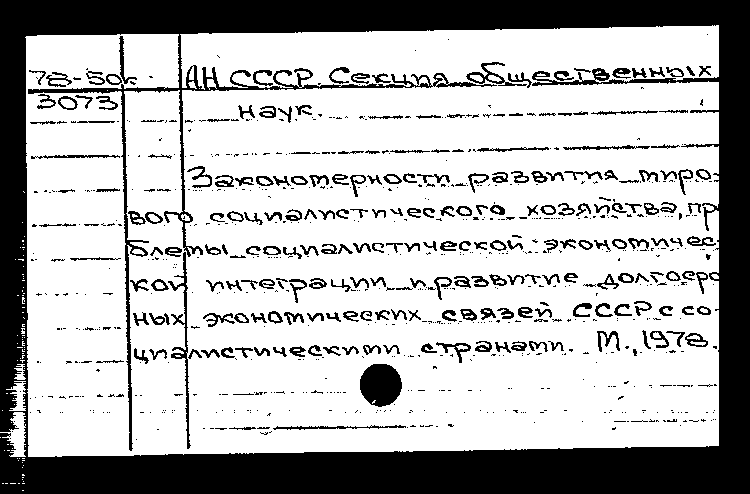 78-50к АН СССР. Секция общественных
3073 наук.
Закономерности развития миро-
вого социалистического хозяйства, пр
блемы социалистической экономичес
кой интеграции и развитие долгосро
ных экономических связей СССР с со-
циалистическими странами. М., 1978.